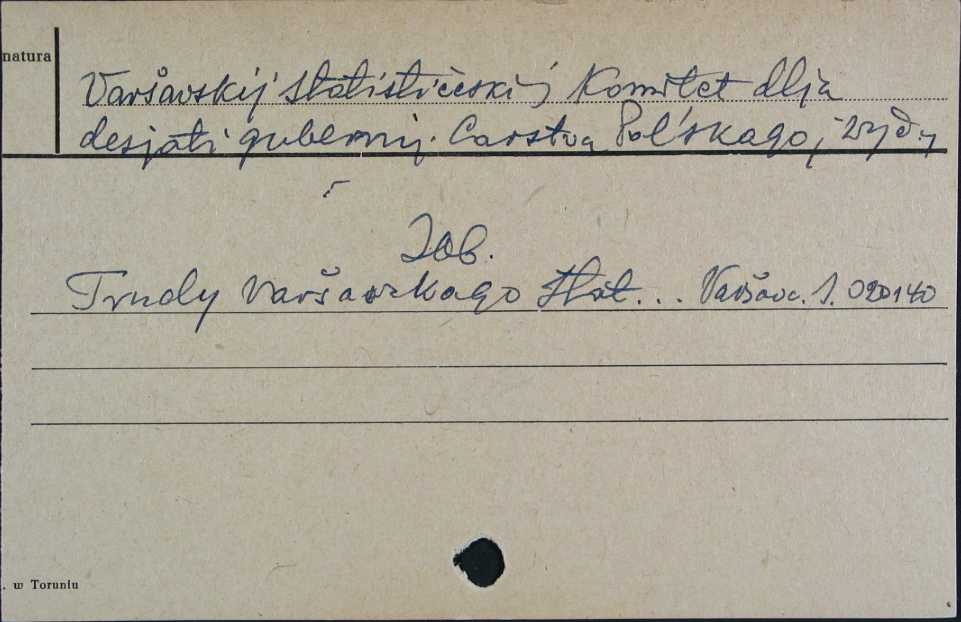 natura
Varšavskij statističeskij Komitet dlja
desjati gubernij. Carstva Pol'skago,
Zob.
Trudy Varšavskago Stat... Varšavs. S. 020140
. w Toruniu